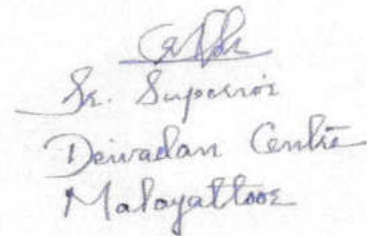 Sr. Superior
Deivadan Centre
Malayattoor